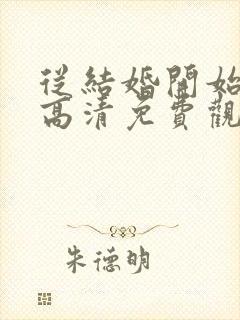 從結婚開始
高清免費觀
朱德明